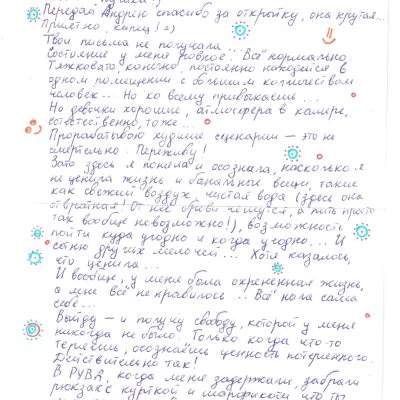 Передай Андрею спасибо за открытку, она крутая...
Приятно, капец! =)
Твои письма не получала...
Состояние у меня ровное. Всё нормально.
Тяжковато, конечно, постоянно находится в
одном помещении с большим количеством
человек.. Но ко всему привыкаешь...
Но девочки хорошие, атмосфера в камере,
естественно, тоже...
Прорабатываю худшие сценарии – это не
смертельно. Переживу!
Зато здесь я поняла и осознала, насколько я
не ценила жизнь и банальные вещи, такие
как свежий воздух, чистая вода (здесь она
отвратная! От неё брови чешутся, а пить просто
так вообще невозможно!), возможность
пойти куда угодно и когда угодно... И
сотню других мелочей... Хотя казалось,
что ценила...
И вообще, у меня была охрененная жизнь,
а мне всё не нравилось... Всё гнала сама
себе...
Выйду – и получу свободу, которой у меня
никогда не было. Только когда что-то
теряешь, осознаёшь ценность потерянного.
Действительно так!
В РУВД, когда меня задержали, забрали
рюкзак с курткой и шарфиком что ты